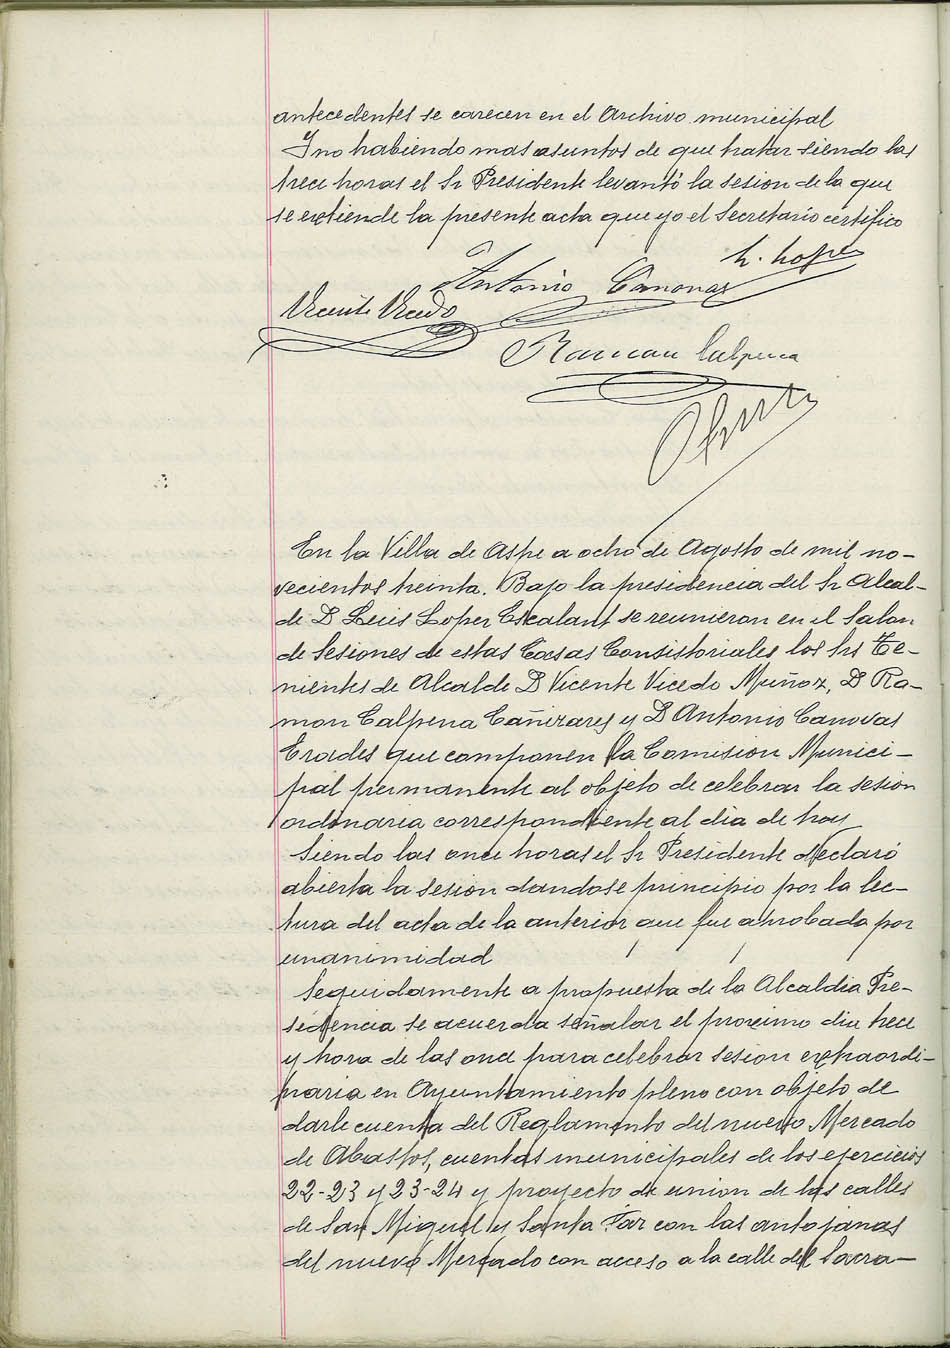 antecedentes se carecen en el Archivo municipal
Y no habiendo mas asuntos de que tratar siendo las
trece horas el Sr Presidente levantó la sesion de la que
se extiende la presente acta que yo el Secretario certifico
L. Lopez
Antonio Canovas
Vicente Vicedo
Ramon Calpena
En la Villa de Aspe a ocho de Agosto de mil no-
vecientos treinta. Bajo la presidencia del Sr Alcal-
de D Luis Lopez Escalant se reunieron en el Salon
de Sesiones de estas Casas Consistoriales los Srs Te-
nientes de Alcalde D Vicente Vicedo Muñoz, D Ra-
mon Calpena Cañizares y D Antonio Canovas
Erades que componen la Comision Munici-
pal permanente al objeto de celebrar la sesion
ordinaria correspondiente al dia de hoy
Siendo las once horas el Sr Presidente declaró
abierta la sesion dandose principio por la lec-
tura del acta de la anterior que fue aprobada por
unanimidad
Seguidamente a propuesta de la Alcaldia Pre-
sidencia se acuerda señalar el proximo dia trece
y hora de las once para celebrar sesion extraordi-
naria en Ayuntamiento pleno con objeto de
darle cuenta del Reglamento del nuevo Mercado
de Abastos, cuentas municipales de los ejercicios
22-23 y 23-24 y proyecto de union de las calles
de San Miguel y Santa Faz con las antojanas
del nuevo Mercado con acceso a la calle del Sacra-